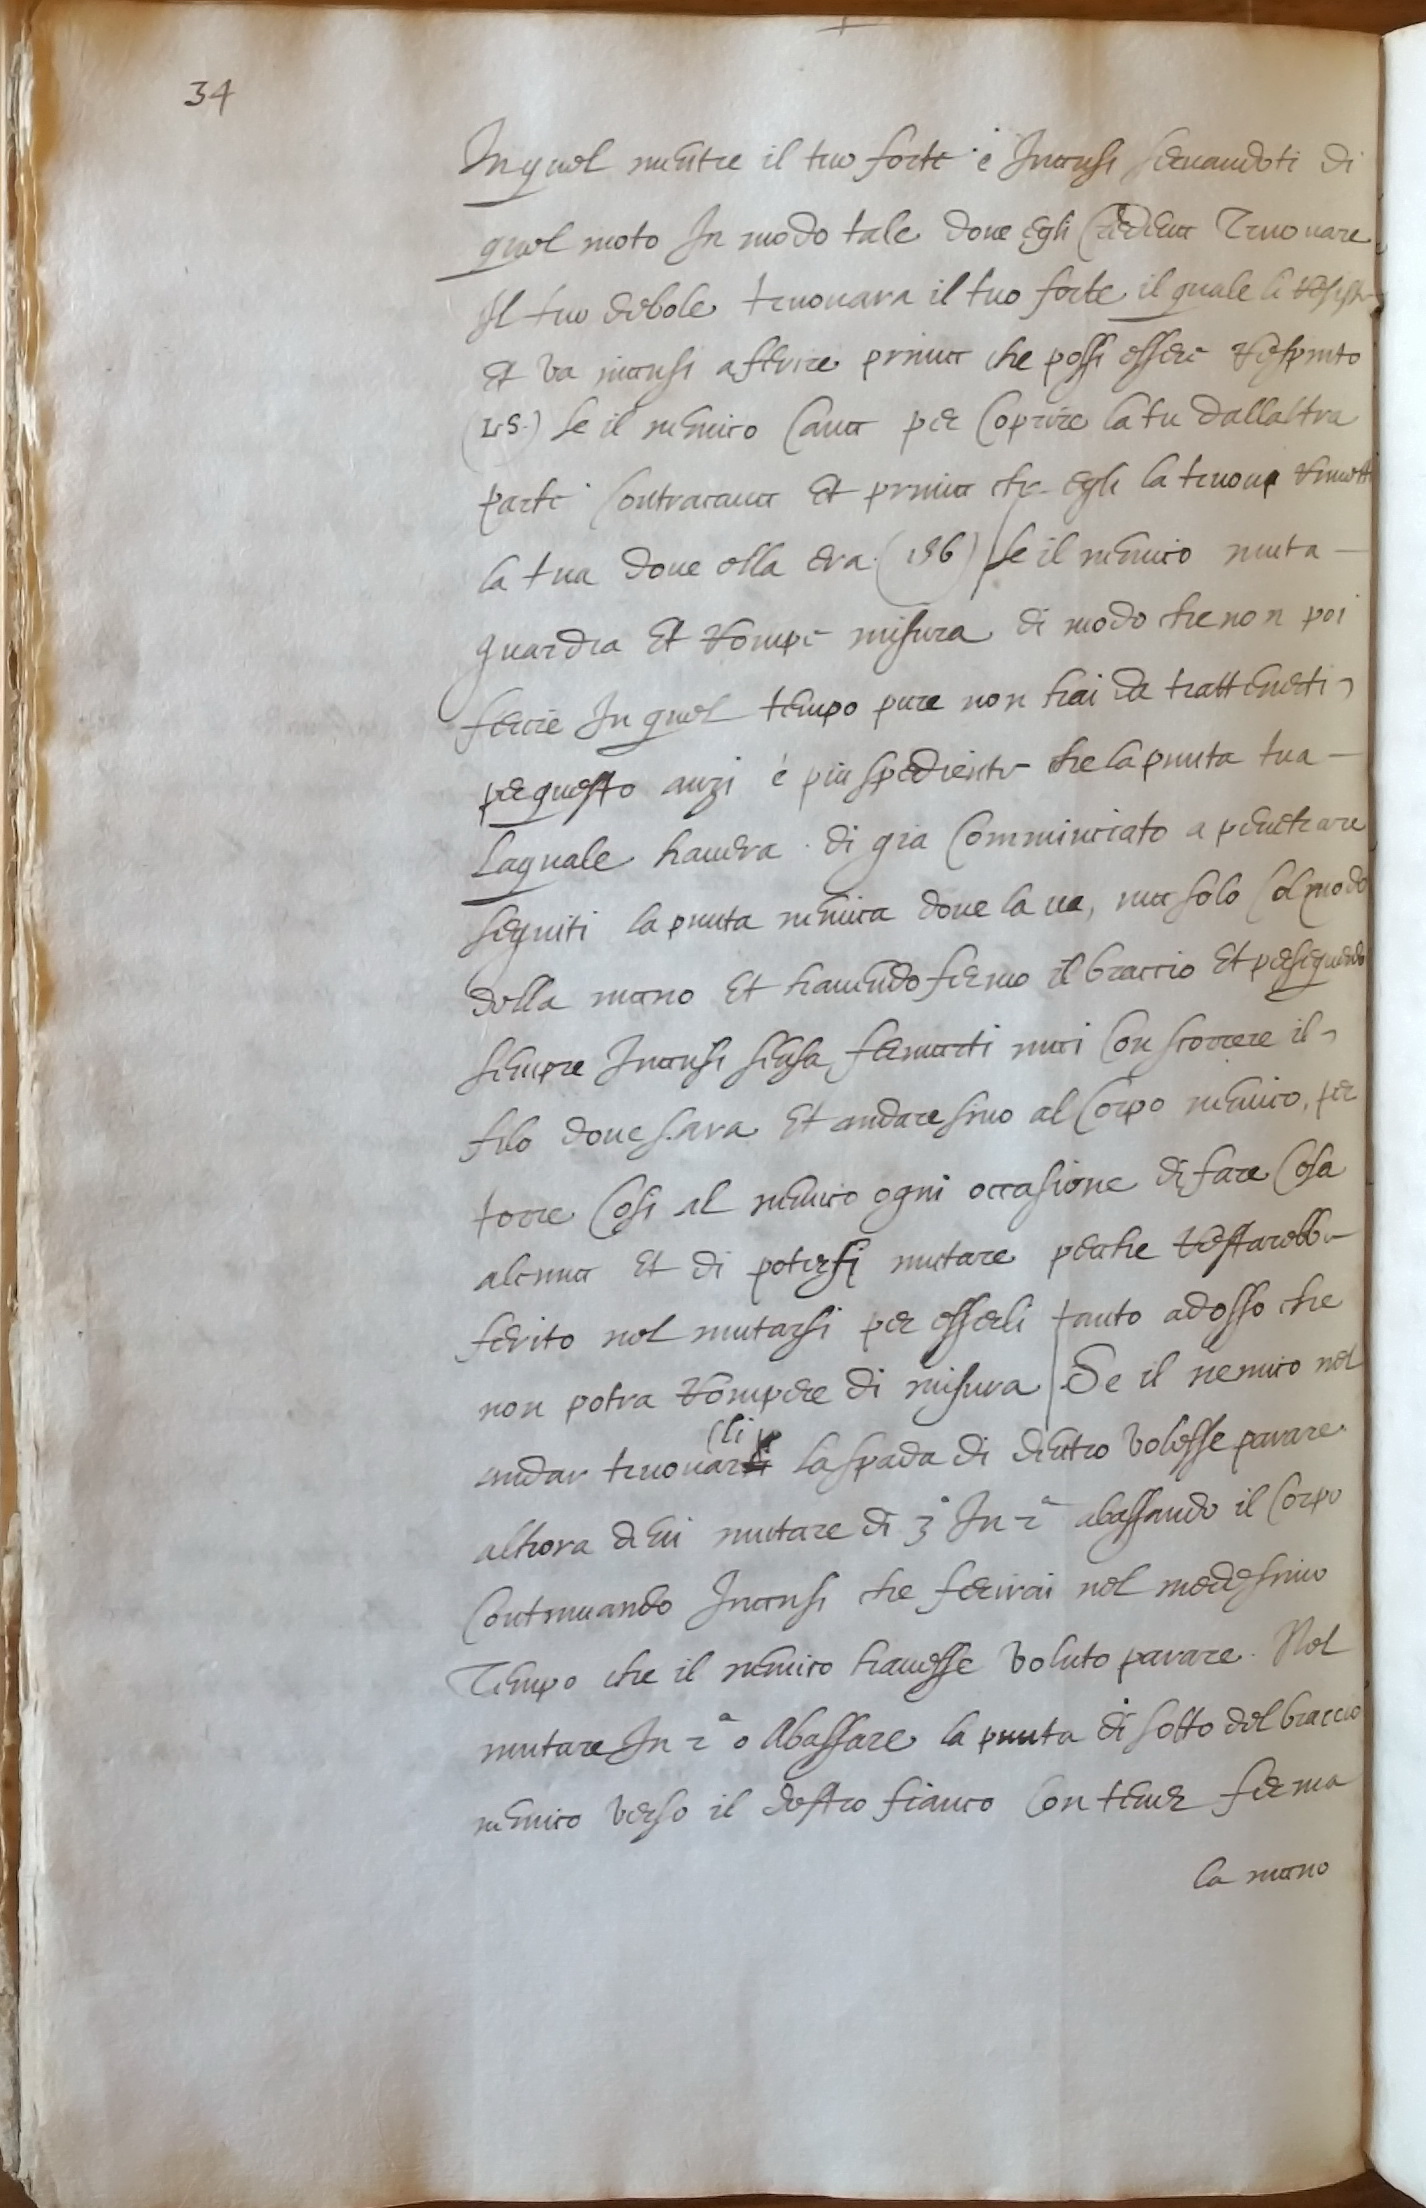 34
In quel mentre il tuo forte è Inansi servandoti di
quel moto In modo tale dove egli Credeva Truovare
Il tuo debole truovara il tuo forte il quale li resiste
et va inansi a ferire prima che possi essere respinto
Se il nemico Cava per Coprire la tu dallaltra
parte Contracava et prima che egli la truova rimetti
la tua dove ella era (156) Se il nemico muta
guardia et rompe misura di modo che non poi
ferire In quel tempo pure non hai da trattenerti
per questo anzi è piu spediente che la punta tua
laquale havera di gia Comminciato a penetrare
seguiti la punta nemica dove la va, ma solo Col modo
della mano et havendo fermo il braccio et perseguendo
sempre Inansi sensa fermarti mai Con scorrere il
filo dove sara et andare sino al Corpo nemico, per
torre Cosi al nemico ogni occasione di fare Cosa
alcuna et di potersi mutare perche restarebbe
ferito nel mutarsi per esserli tanto adosso che
non potra rompere di misura Se il nemico nel
andar truovarli la spada di dentro volesse parare
alhora devi mutare di 3ª In 2ª abassando il Corpo
Continuando Inansi che ferirai nel medesimo
Tempo che il nemico havesse voluto parare. Nel
mutare In 2ª o Abassare la punta di sotto del braccio
nemico verso il destro fianco Con tener ferma
la mano